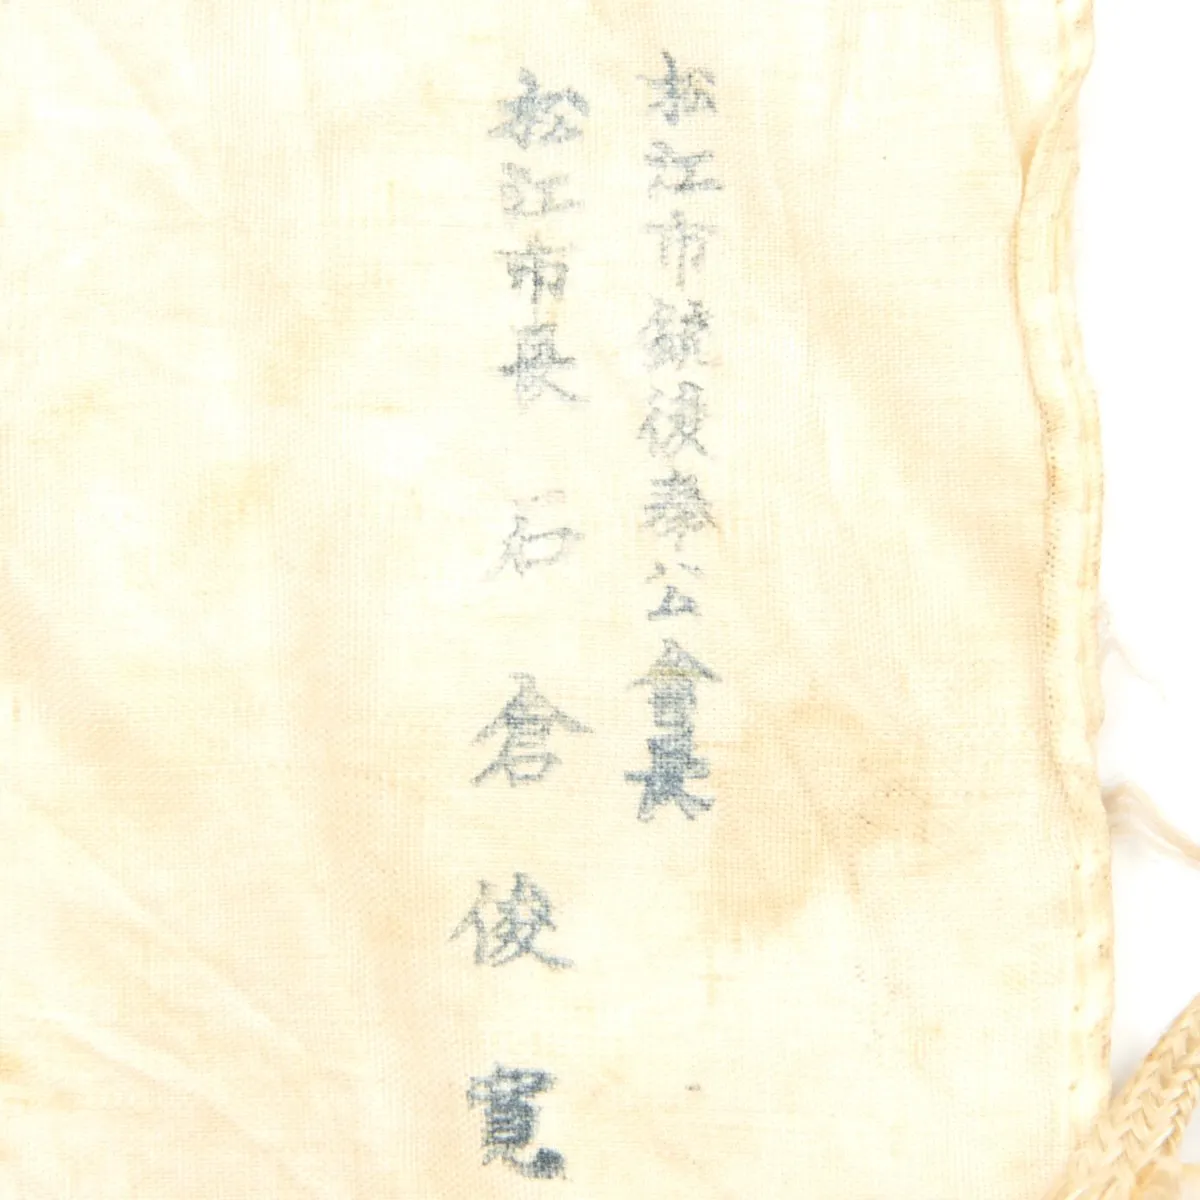 松江市銃後奉公会長
松江市長 石倉俊寛